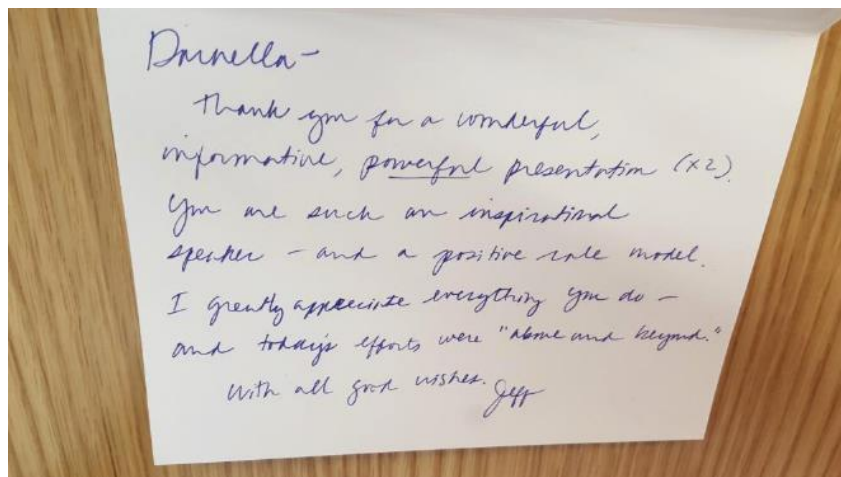 Darnella-
Thank you for a wonderful,
informative, powerful presentation (x2).
You are such an inspirational
speaker - and a positive role model.
I greatly appreciate everything you do -
and today's efforts were "above and beyond."
With all good wishes. Jeff